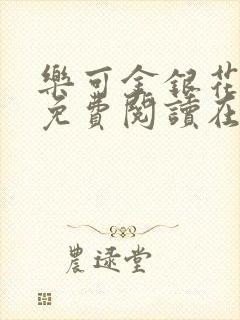 樂可金銀花
免費閱讀在
農逯堂